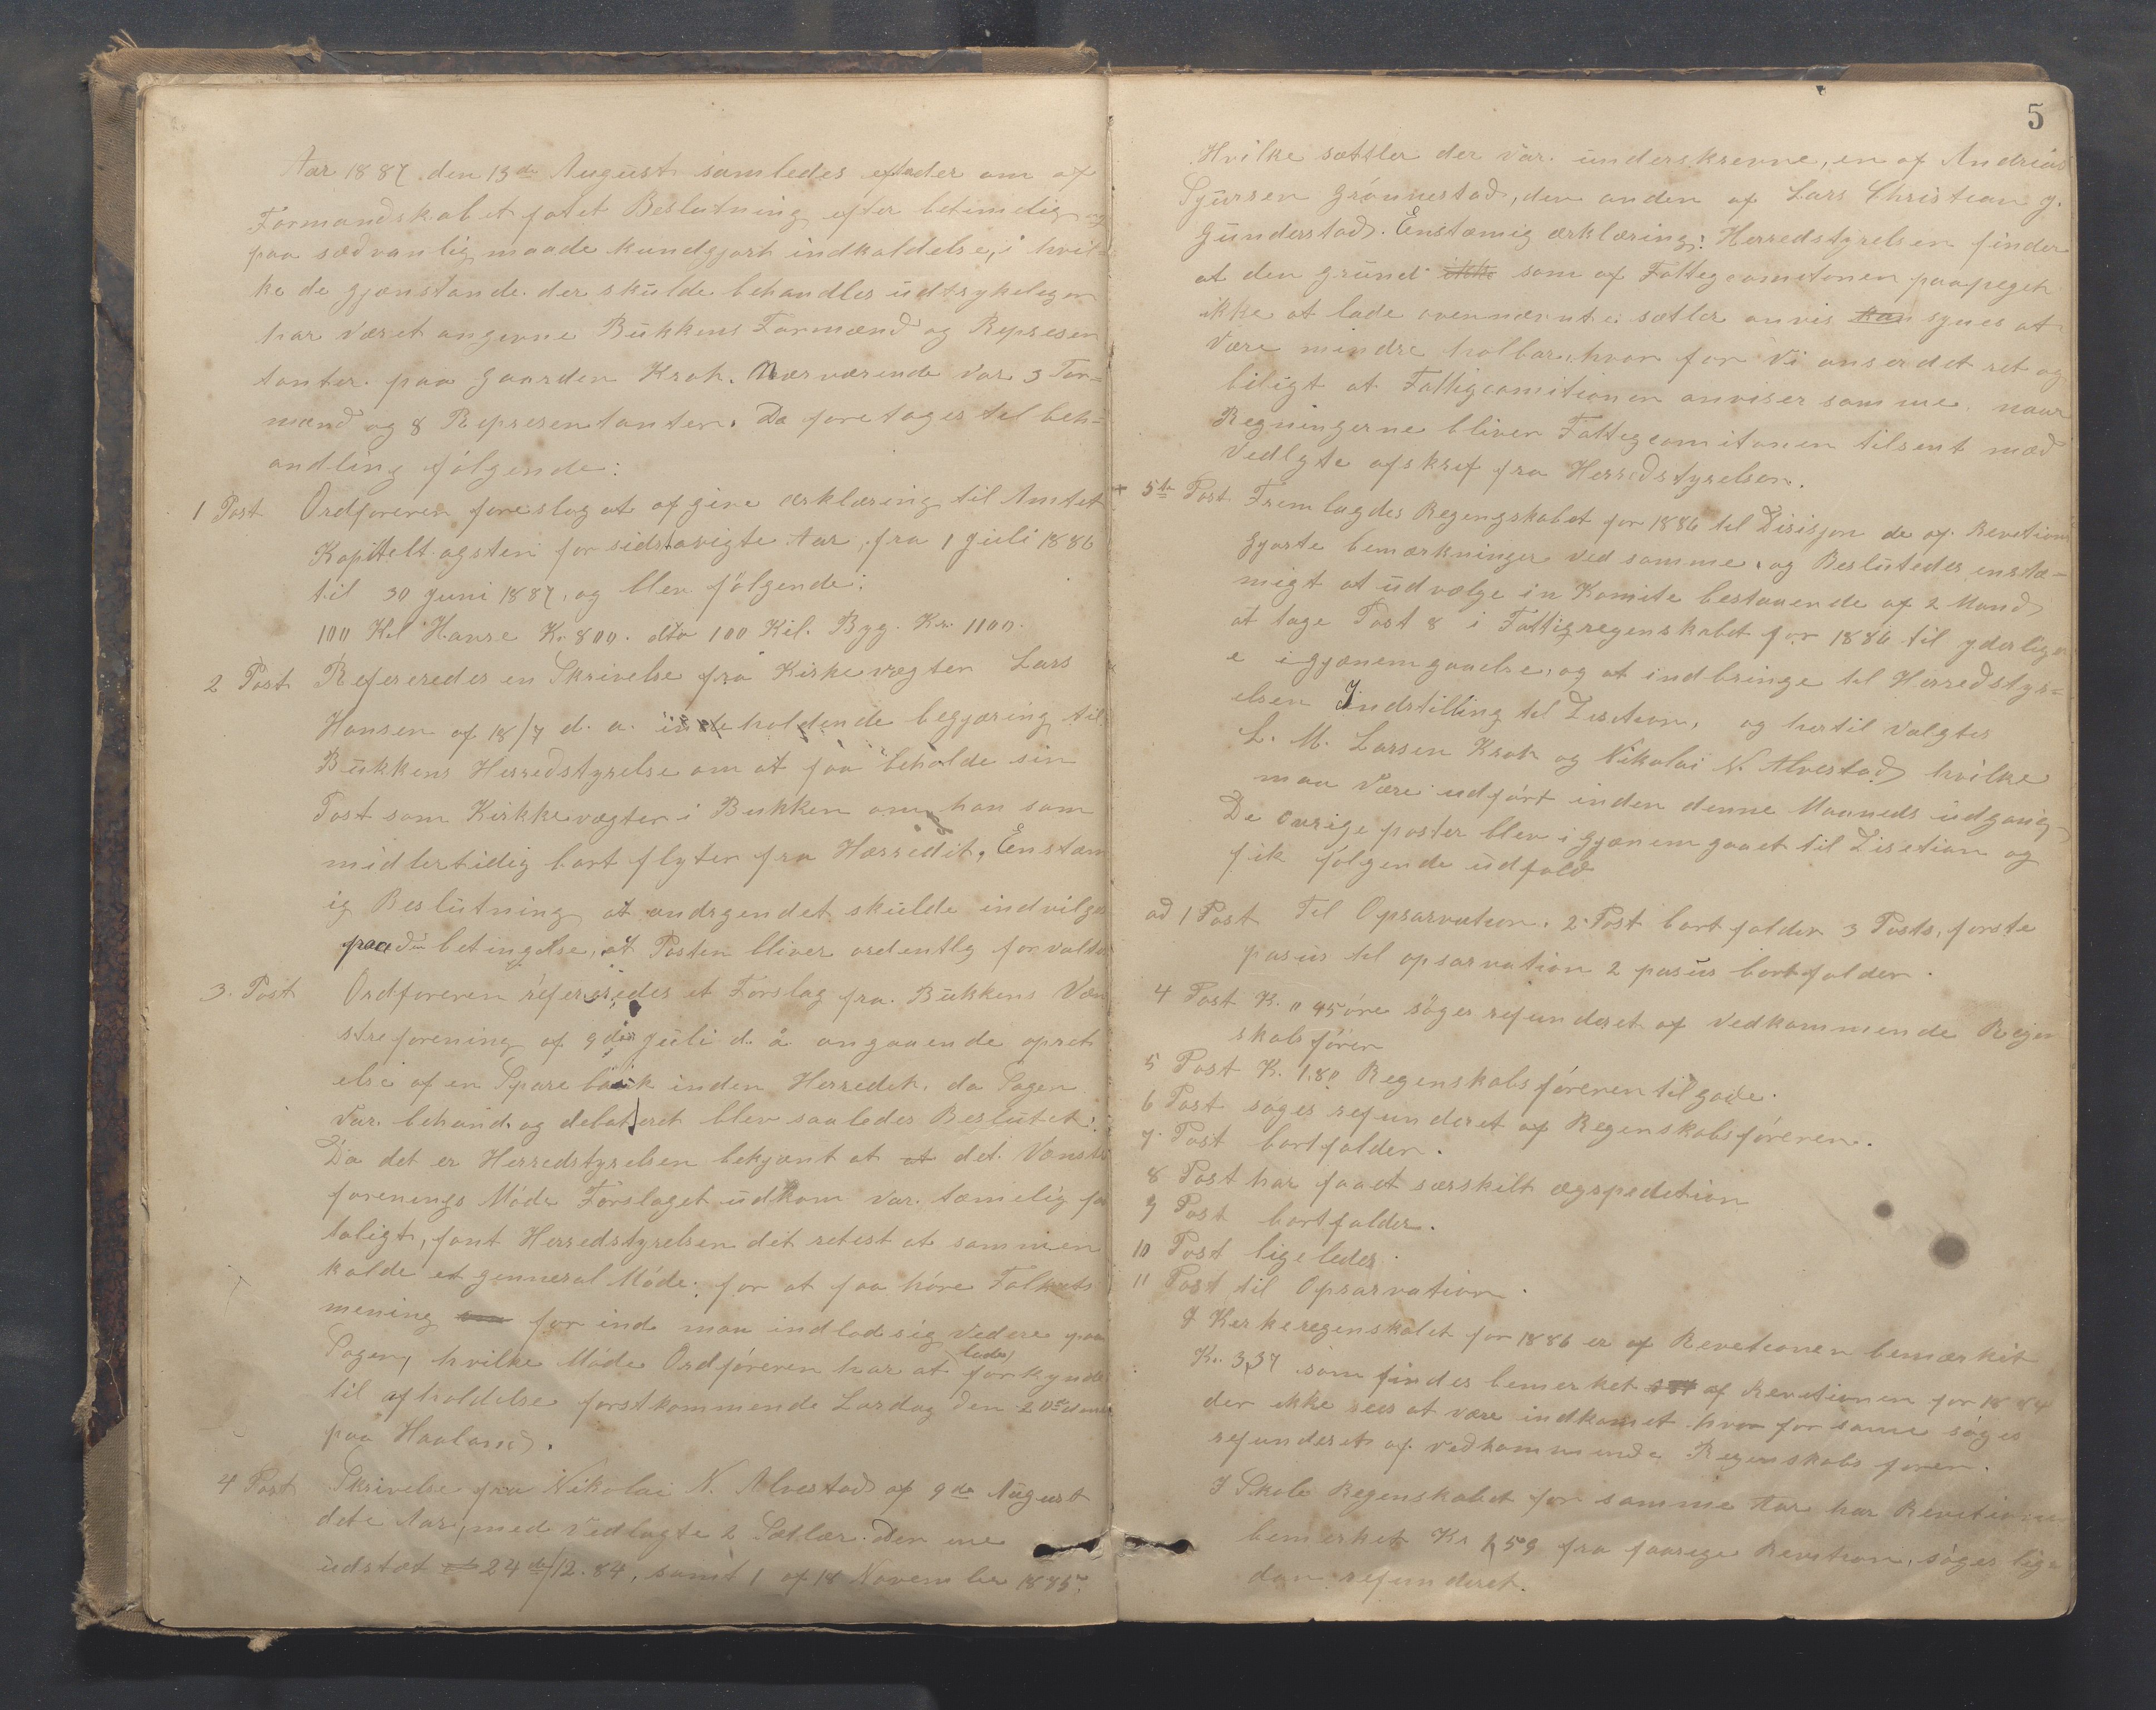 Aar 1887 den 13de August samledes efter der om af
Formandskabet fatet Beslutning efter betimelig og
paa sædvanlig maade kundgjort indkaldelse, i hvil-
ke de gjenstande der skulde behandles udtrykeligen
har været angevne Bukkens Formænd og Represen
tanter paa Gaarden Krok. Nærværende var 3 For=
mænd og 8 Representanter. Da foretages til beh=
andling følgende:
1 Post Ordføreren foreslog at afgive ærklæring til Amtet
Kapiteltagsten for sidstavigte Aar, fra 1 Juli 1886
til 30 Juni 1887, og blev følgende:
100 Kil Havre Kr 800. dto 100 Kil. Byg. Kr. 1100.
2 Post Refereredes en Skrivelse fra Kirkevægter Lars
Hansen af 18/7 d. a. indeholdende begjæring til
Bukkens Herredstyrelse om at faa beholde sin
Post som Kirkkevægter i Bukken om han som
midlertidig bort flyter fra Hærredit, Enstæm
ig Beslutning at andragendet skulde indvilges
paa den betingelse, at Posten bliver ordentlg forvaltet
3. Post Ordføreren refereredes et Forslag fra Bukkens Væn
streforening af 9de Juli d. å. angaaende opret
else af en Sparebank inden Herredet. da Sagen
var behand. og debatteret blev saaledes Beslutet:
Da det er Herredstyrelsen bekjent at at det Vænstre
forenings Møde Forslaget udkom var tæmelig faa
taligt, fant Herredstyrelsen det retest at sammen
kalde et genneral Møde, for at faa høre Folkets
mening om for ind man indlod sig vedere paa
Sagen, hvilke Møde Ordføreren har at lade forkynde
til afholdelse førstkommende Lørdag den 20de dennes
paa Haaland.
4 Post Skrivelse fra Nikolai N. Alvestad af 9de August
dete Aar, med vedlagte 2 Sætler. Den ene
udstæt 24de/12.84, samt 1 af 18 November 1885.
5
Hvilke sættler der var underskrevne, en af Andreas
Sjursen Grønnestad, den anden af Lars Christian G.
Gunderstad. Enstæmig ærklæring: Herredstyrelsen finder
at den grund ikke som af Fattigcomitonen paapeget
ikke at lade ovennævnte sætler anvis kan synes at
være mindre holbar, hvor for vi anser det ret og
biligt at Fattigcomitionen anviser samme, naar
Regningerne bliver Fattegcomitonen tilsent mæd
vedlgte afskref fra Herredstyrelsen.
+ 5te Post. Fremlagdes Regengskabet for 1886 til Disisjon de af Revetions
gjorte bemærkninger ved samme, og Beslutedes enstæ-
migt at udvælge in Komite bestaaende af 2 Mænd
at tage Post 8 i Fattigregenskabet for 1886 til yderliger
e igjænemgaaelse, og at indbringe til Herredstyr=
elsen Indstilling til Disetion, og hertil valgtes
L. M. Larsen Krok og Nikolai N. Alvestad hvilke
maa være udført inden denne Maaneds udgang,
De øvrige poster blev igjænemgaaet til Disetion og
fik følgende udfald
ad 1 Post Til Opsarvation. 2. Post bortfalder 3 Posts, første
pasus til opsarvation 2 pasus bortfalder.
4 Post K. " 95 øre søges refunderet af vedkommende Regen
skabsfører
5 Post K. 1.80 Regenskabsføreren til gode.
6 Post søges refunderet af Regenskabsføreren.
7. Post bortfalder.
8 Post har faaet særskilt ægspedetion
9 Post bortfalder.
10 Post ligeledes.
11 Post til Opsarvation.
I Kerkeregenskabet for 1886 er af Revetionen bemærkit
Kr. 3,37 som findes bemerket af Revetionen for 1884
der ikke sees at være indkomet hvor for same søges
refunderet af vedkommende Regenskabs fører.
I Skole Regenskabet for samme Aar har Revetionen
bemerket Kr 1,59 fra faarege Revetion, søges lige
dan refunderet.